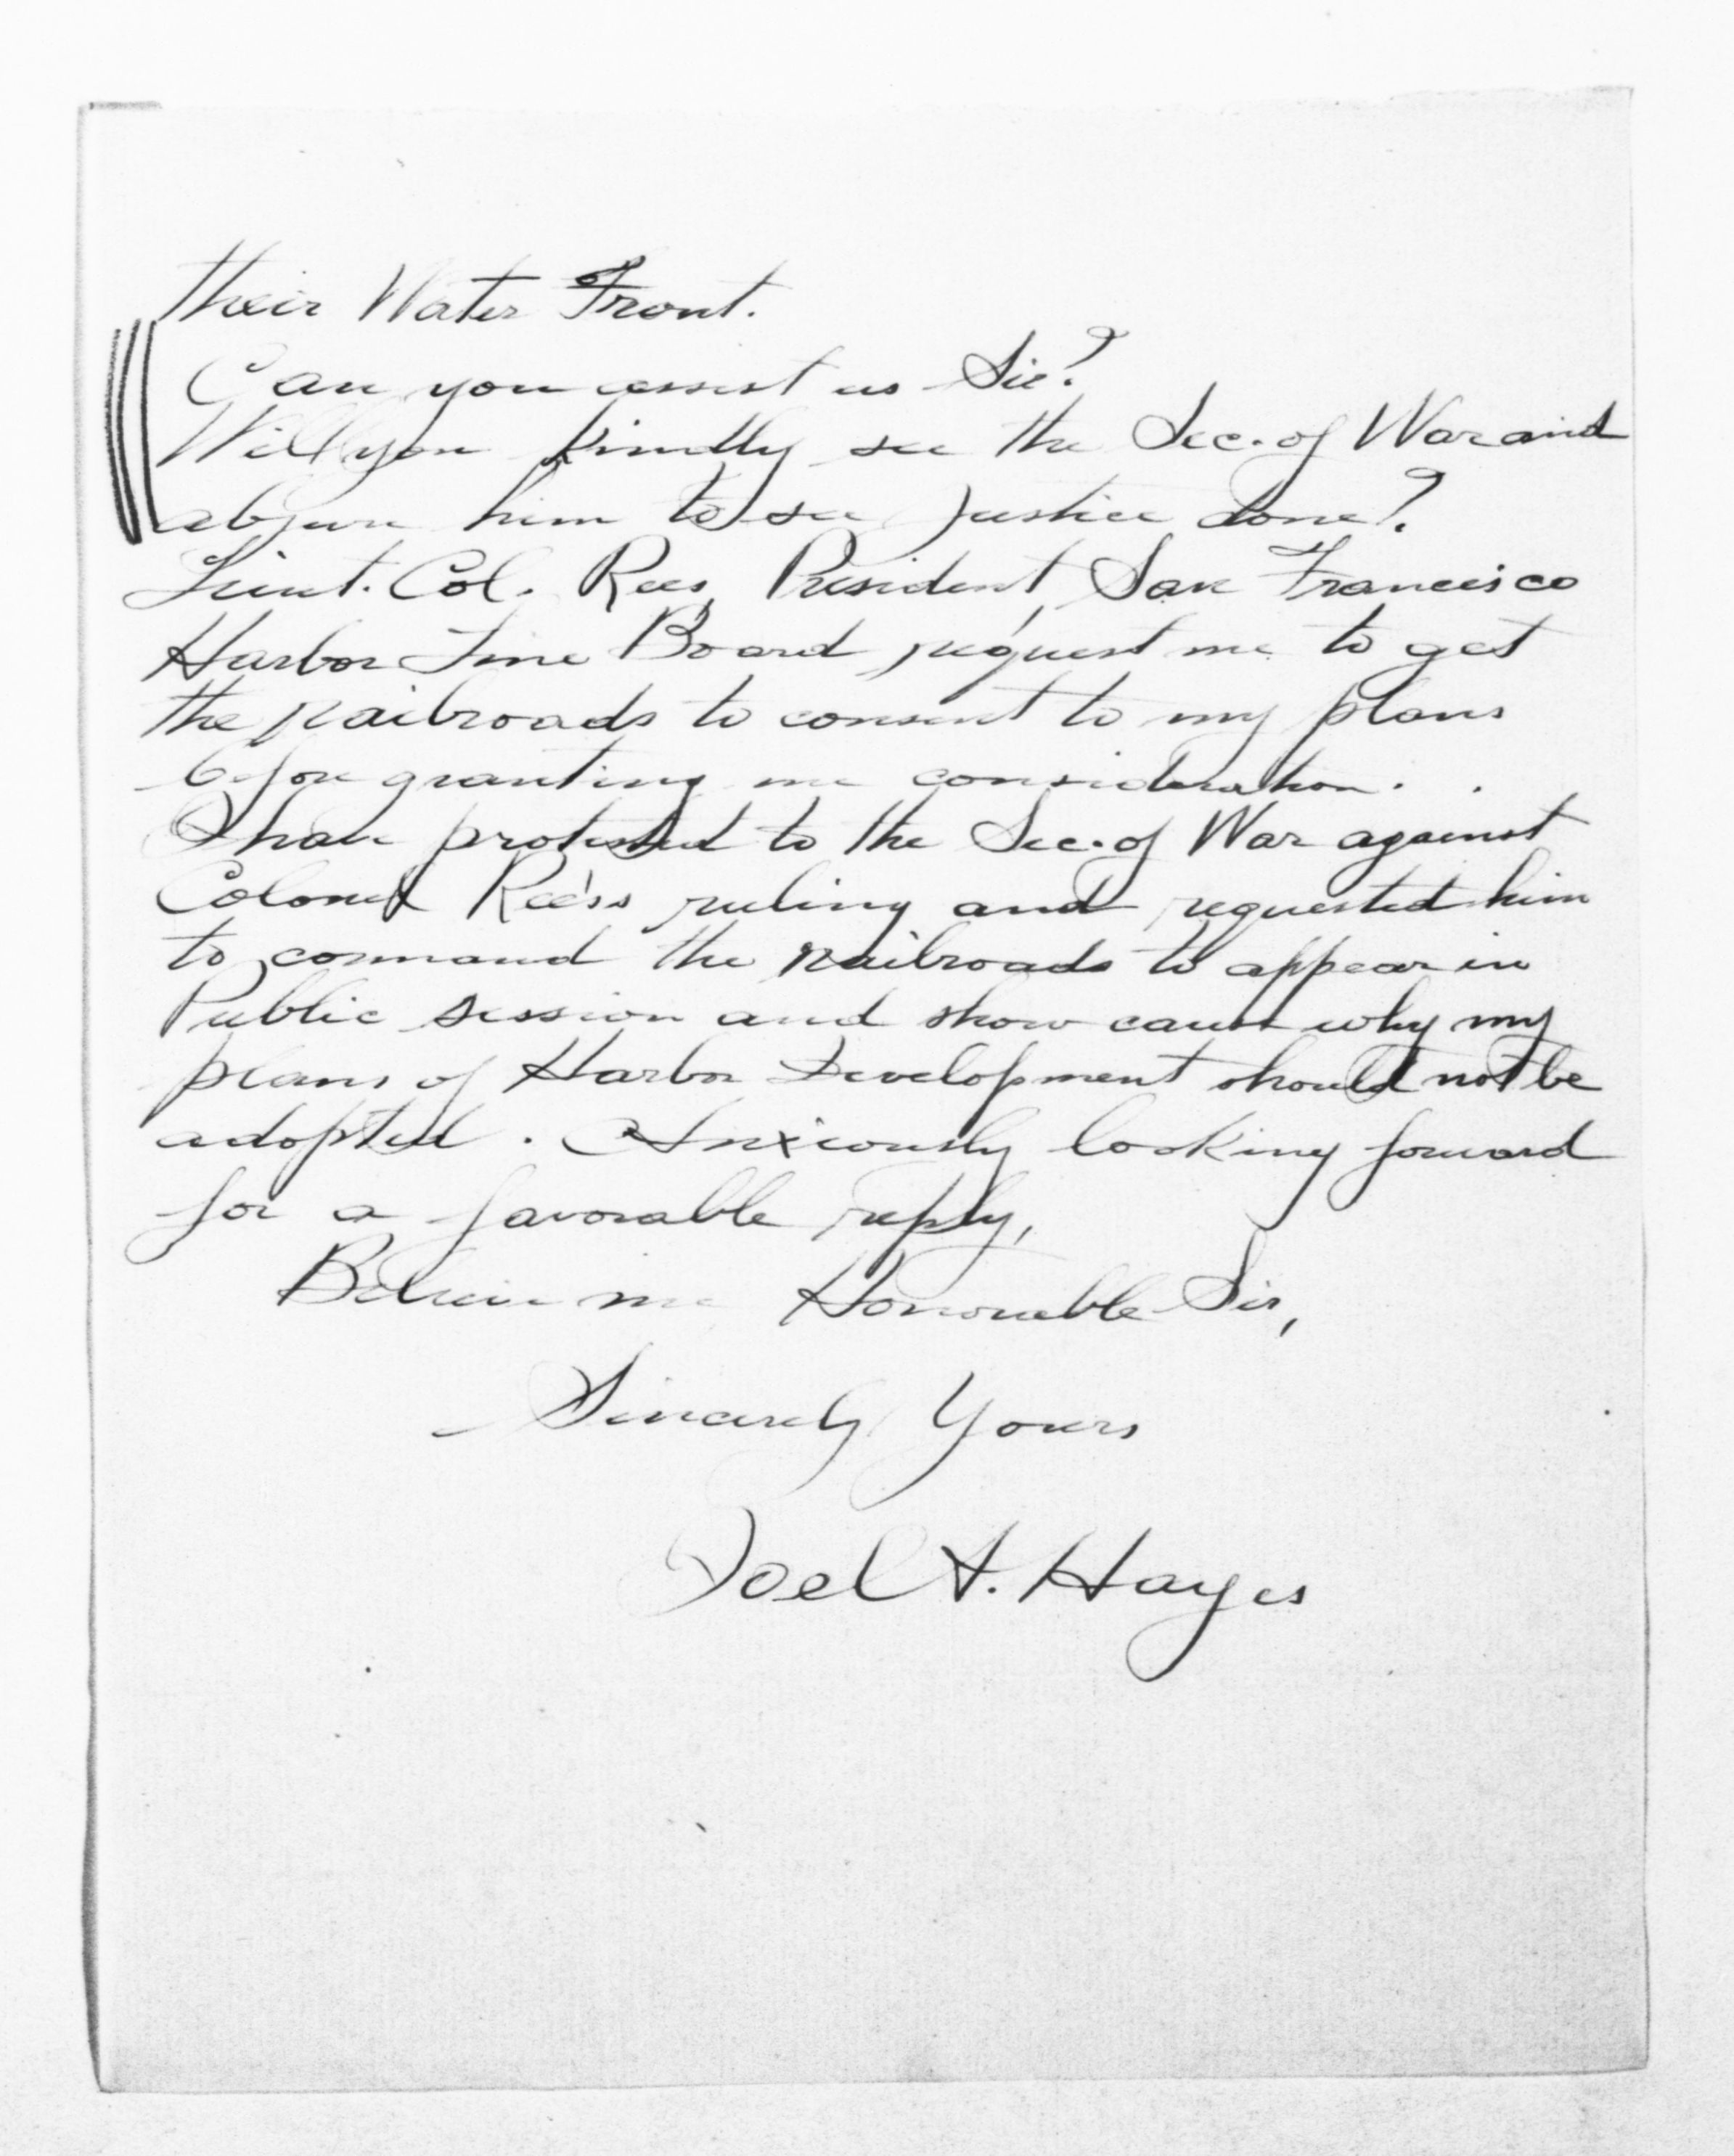 their Water Front.
Can you assist us Sir?
Will you kindly see the Sec. of War and
abjure him to see justice done?
Lieut. Col. Rees, President, San Francisco
Harbor Line Board, request me to get
the railroads to consent to my plans
before granting me consideration.
I have protested to the Sec. of War against
Colonel Rees's ruling and requested him
to command the railroads to appear in
Public session and show cause why my
plans of Harbor Development should not be
adopted. Anxiously looking forward
for a favorable reply,
Believe me Honorable Sir,
Sincerely Yours
Joel A. Hayes